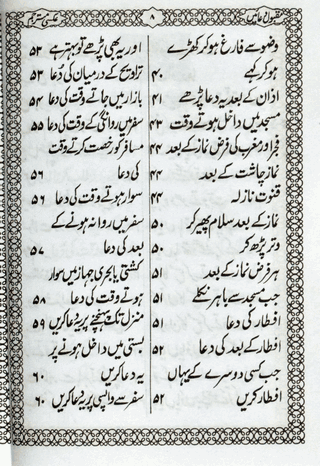 مقبول دعائیں
۸
عکسی مترجم
وضو سے فارغ ہو کر کھڑے
ہو کر کہے ۴۰
اذان کے بعد یہ دعا پڑھے ۴۱
مسجد میں داخل ہوتے وقت ۴۳
فجر اور مغرب کی فرض نماز کے بعد ۴۴
نماز چاشت کے بعد ۴۴
قنوت نازلہ ۴۴
نماز کے بعد سلام پھیر کر ۵۰
وتر پڑھ کر ۵۰
ہر فرض نماز کے بعد ۵۱
جب مسجد سے باہر نکلے ۵۱
افطار کی دعا ۵۱
افطار کے بعد کی دعا ۵۲
جب کسی دوسرے کے یہاں
افطار کریں ۵۲
اور یہ بھی پڑھے تو بہتر ہے ۵۳
تراویح کے درمیان کی دعا ۵۳
بازار میں جاتے وقت کی دعا ۵۴
سفر میں روانگی کے وقت کی دعا ۵۵
مسافر کو رخصت کرتے وقت
کی دعا ۵۶
سوار ہوتے وقت کی دعا ۵۶
سفر میں روانہ ہونے کے
بعد کی دعا ۵۷
کشتی یا بحری جہاز میں سوار
ہوتے وقت کی دعا ۵۸
منزل تک پہنچنے پر یہ دعا کریں ۵۹
بستی میں داخل ہونے پر
یہ دعا کریں ۶۰
سفر سے واپسی پر یہ دعا کریں ۶۰